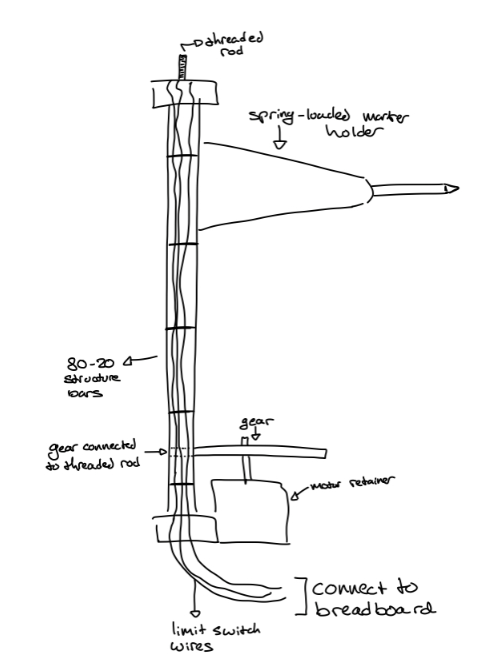 threaded
rod
spring-loaded marker
holder
80-20
structure
bars
gear
gear connected
to threaded rod
motor retainer
connect to
breadboard
limit switch
wires